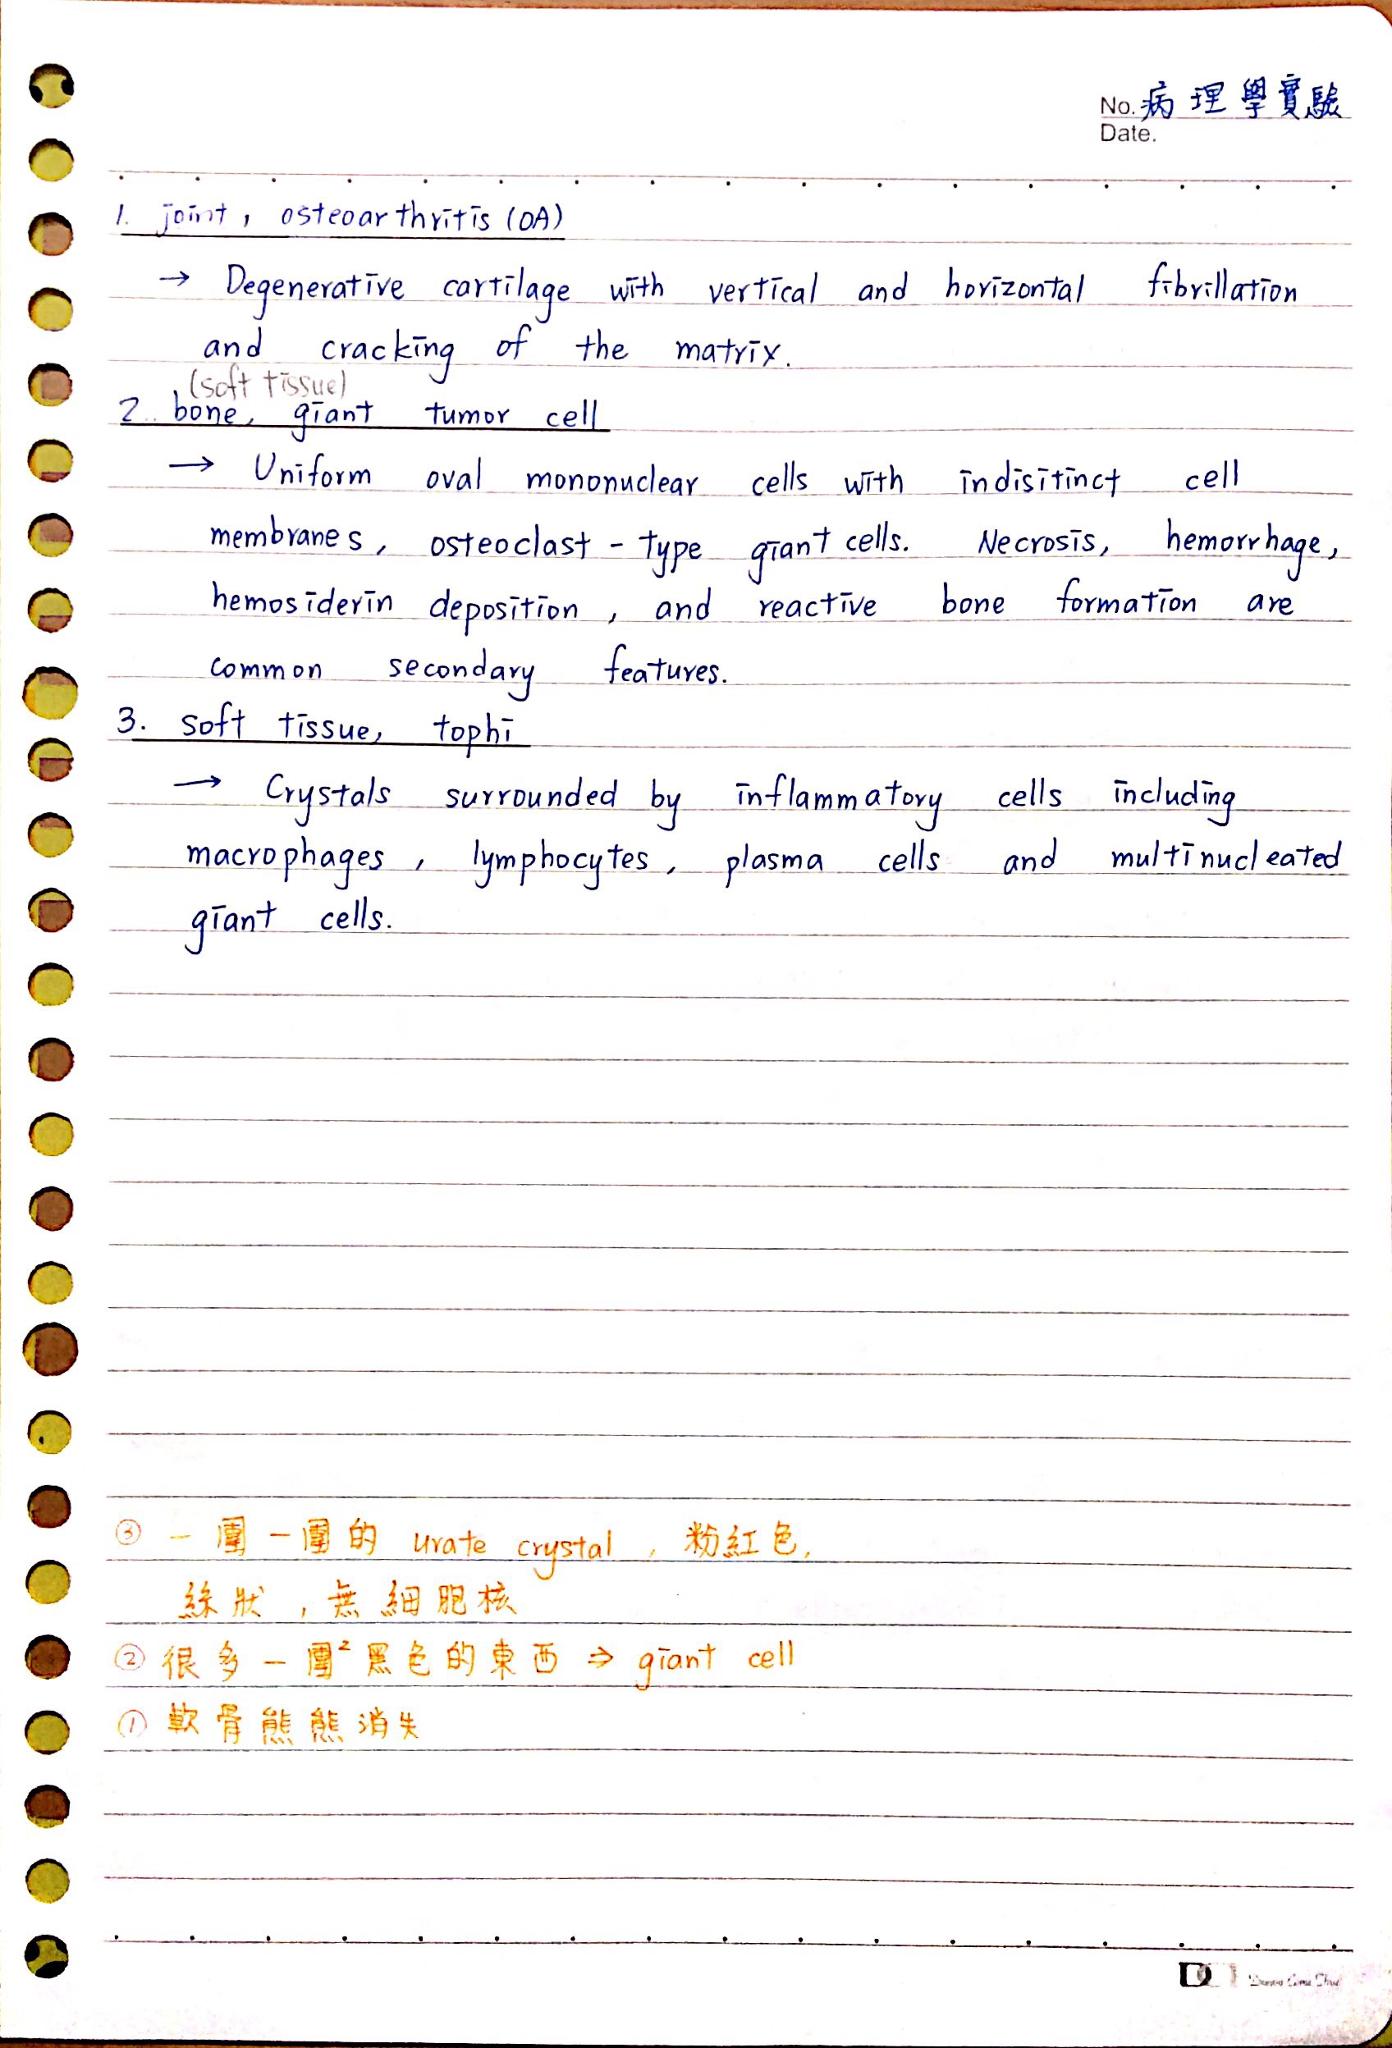 No. 病理學實驗
Date.
1. joint, osteoarthritis (OA)
→ Degenerative cartilage with vertical and horizontal fibrillation
and cracking of the matrix.
(soft tissue)
2. bone, giant tumor cell
→ Uniform oval mononuclear cells with indisitinct cell
membranes, osteoclast-type giant cells. Necrosis, hemorrhage,
hemosiderin deposition, and reactive bone formation are
common secondary features.
3. soft tissue, tophi
→ Crystals surrounded by inflammatory cells including
macrophages, lymphocytes, plasma cells and multinucleated
giant cells.
③ 一團一團的 urate crystal, 粉紅色,
絲狀, 無細胞核
② 很多一團² 黑色的東西 ⇒ giant cell
① 軟骨熊熊消失
Dreams Come True